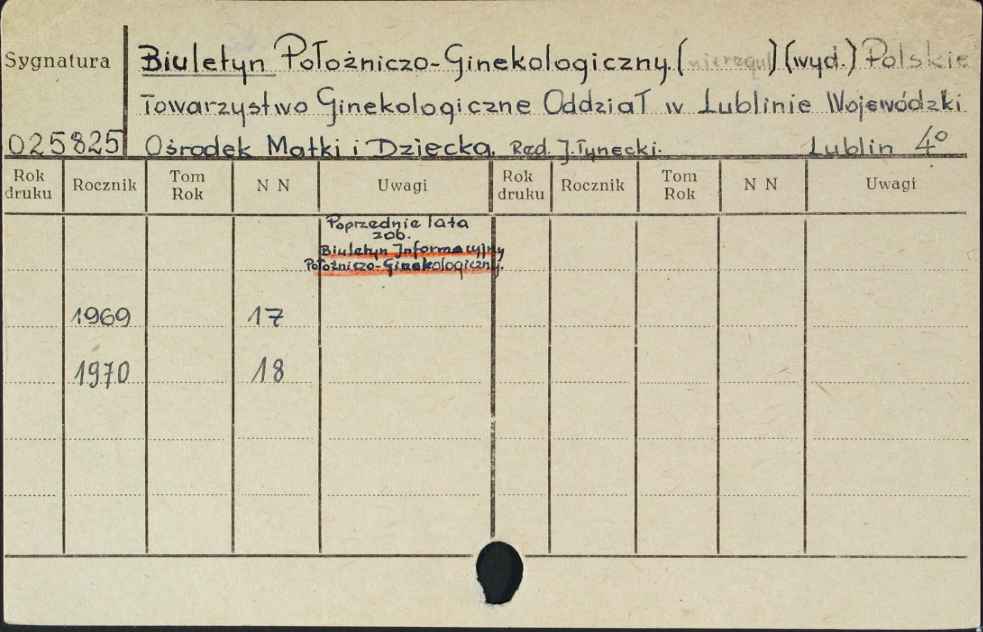 Sygnatura Biuletyn Położniczo-Ginekologiczny. (nieregul) (wyd.) Polskie
Towarzystwo Ginekologiczne Oddział w Lublinie Wojewódzki
025825 Ośrodek Matki i Dziecka. Red. J. Tynecki. Lublin 4°
Rok druku Rocznik Tom Rok N N Uwagi Rok druku Rocznik Tom Rok N N Uwagi
Poprzednie lata
zob.
Biuletyn Informacyjny
Położniczo-Ginekologiczny.
1969 17
1970 18